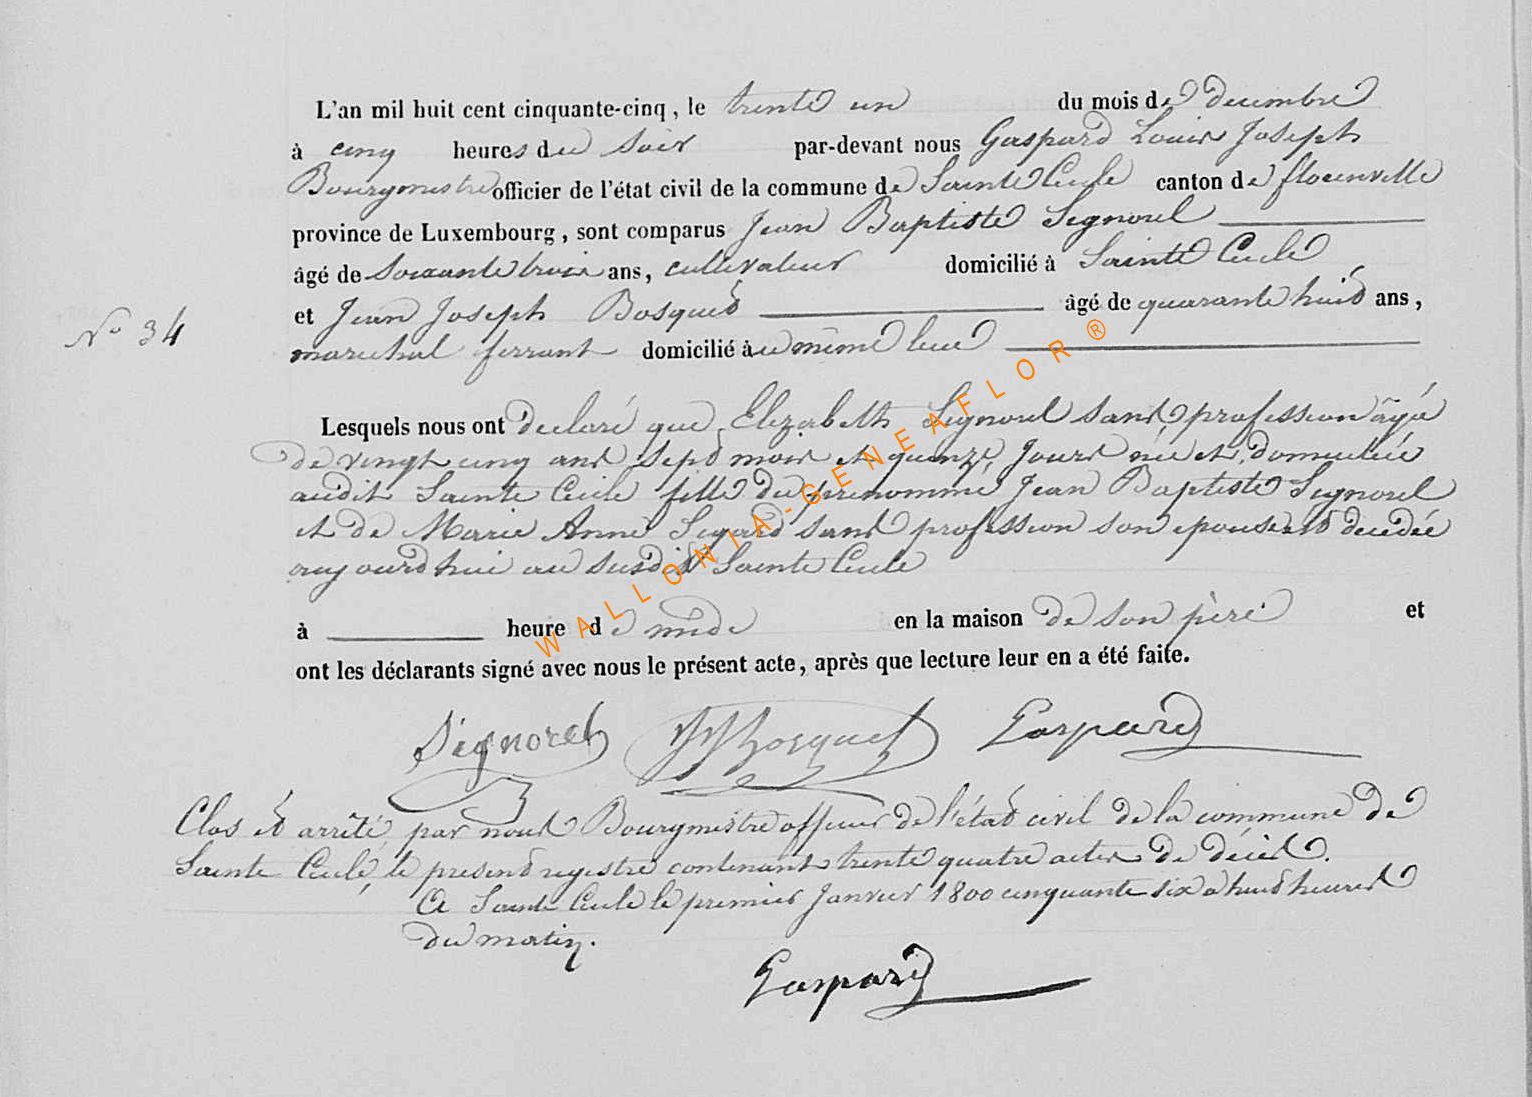 L'an mil huit cent cinquante-cinq, le trente un du mois de decembre
à cinq heures du soir par-devant nous Gaspard Louis Joseph
Bourgmestre officier de l'état civil de la commune de Sainte Cecile canton de florenville
province de Luxembourg, sont comparus Jean Baptiste Signorel
âgé de soixante trois ans, cultivateur domicilié à Sainte Cecile
et Jean Joseph Bosquet âgé de quarante huit ans,
N° 34
marechal ferrant domicilié à au même lieu
Lesquels nous ont declaré que Elizabeth Signorel sans profession âgée
de vingt cinq ans sept mois et quinze jours née et domiciliée
audit Sainte Cecile fille du prenommé Jean Baptiste Signorel
et de Marie Anne Sigard sans profession son epouse est decedée
aujourd'hui au susdit Sainte Cecile
à heure de midi en la maison de son père et
ont les déclarants signé avec nous le présent acte, après que lecture leur en a été faite.
Signorel JJ Bosquet Gaspard
Clos et arrêté par nous Bourgmestre officier de l'état civil de la commune de
Sainte Cecile, le present registre contenant trente quatre actes de décès.
A Sainte Cecile le premier Janvier 1800 cinquante six a huit heures
du matin.
Gaspard
WALLONIA-GENEAFLOR®